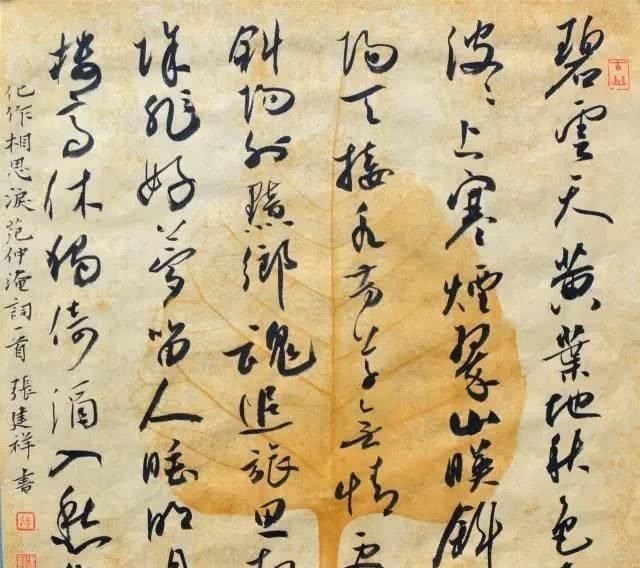 碧雲天黄葉地秋色
波〻上寒煙翠山映斜
陽天接水芳草無情更
斜陽外黯鄉魂追旅思
除非好夢留人睡明月
樓高休獨倚酒入愁
化作相思淚范仲淹詞一首 張建祥書